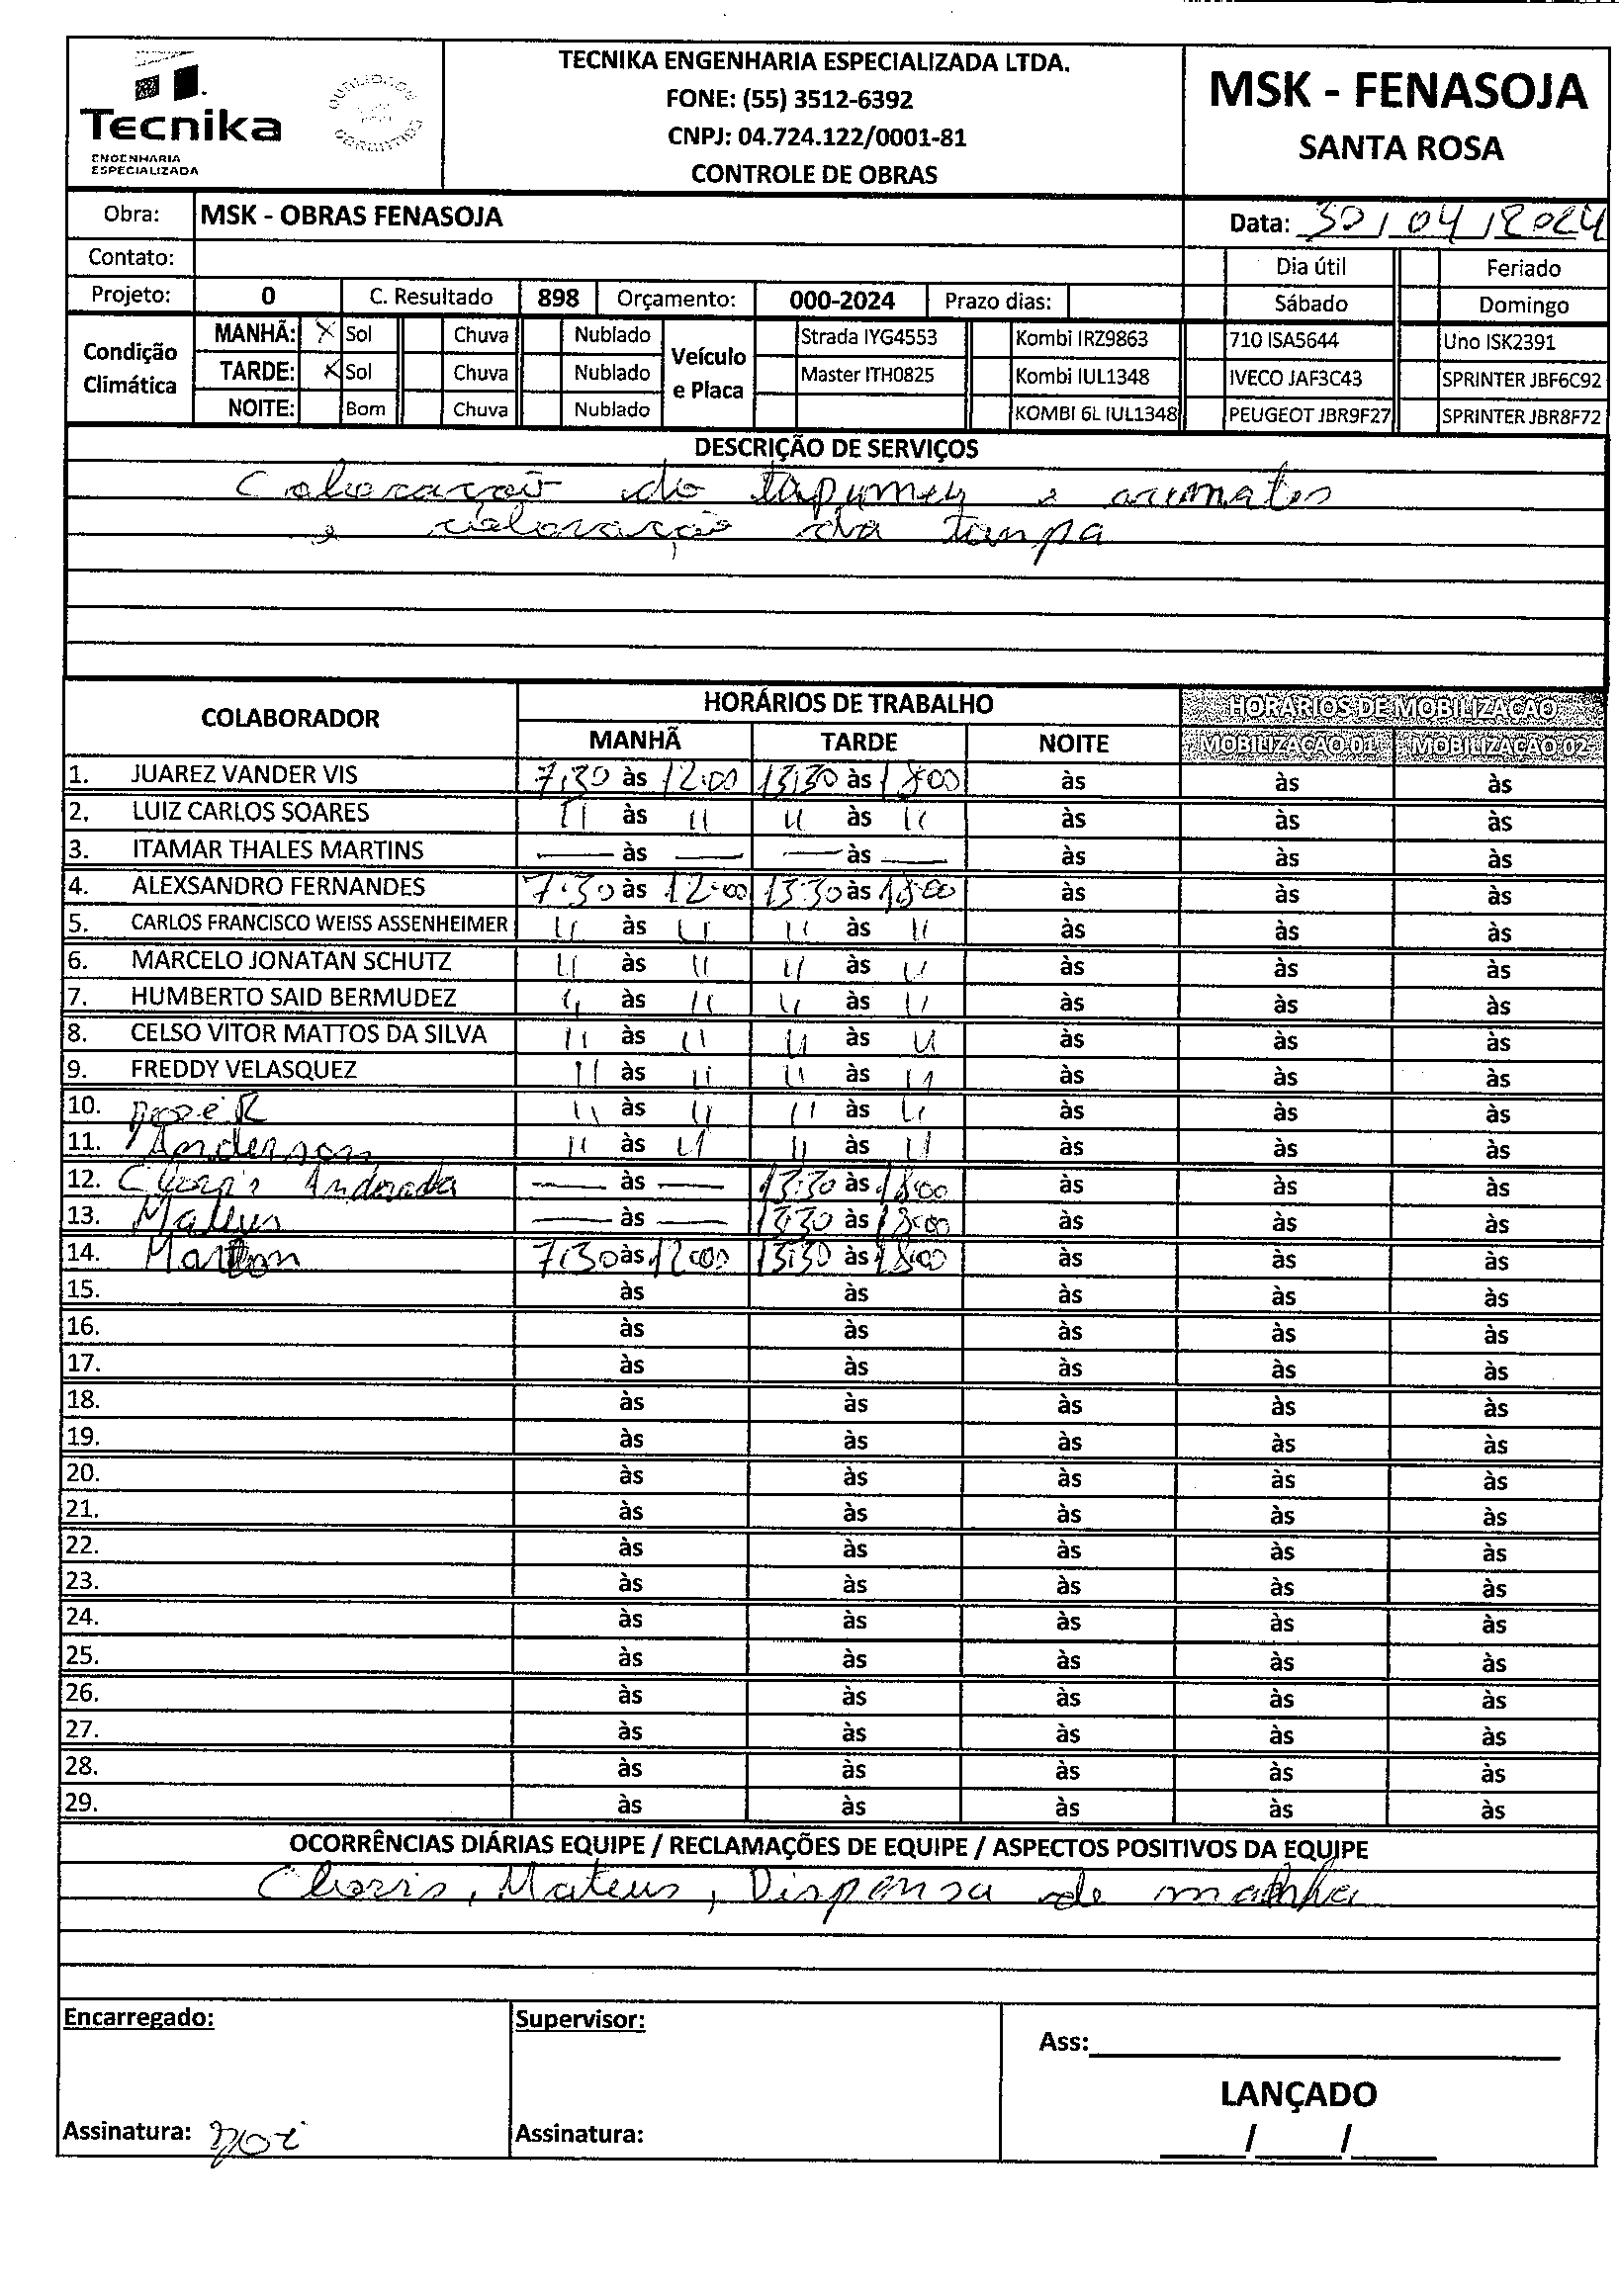 Tecnika
ENGENHARIA
ESPECIALIZADA
TECNIKA ENGENHARIA ESPECIALIZADA LTDA.
FONE: (55) 3512-6392
CNPJ: 04.724.122/0001-81
CONTROLE DE OBRAS
MSK - FENASOJA
SANTA ROSA
Obra: MSK - OBRAS FENASOJA
Data: 30/04/2024
Contato:
Dia útil Feriado
Projeto: 0 C. Resultado 898 Orçamento: 000-2024 Prazo dias: Sábado Domingo
Condição Climática
MANHÃ: X Sol Chuva Nublado
TARDE: X Sol Chuva Nublado
NOITE: Bom Chuva Nublado
Veículo e Placa
Strada IYG4553 Kombi IRZ9863 710 ISA5644 Uno ISK2391
Master ITH0825 Kombi IUL1348 IVECO JAF3C43 SPRINTER JBF6C92
KOMBI 6L IUL1348 PEUGEOT JBR9F27 SPRINTER JBR8F72
DESCRIÇÃO DE SERVIÇOS
Colocação do tapumes e
e colocação da tanpa
COLABORADOR HORÁRIOS DE TRABALHO HORÁRIOS DE MOBILIZAÇÃO
MANHÃ TARDE NOITE MOBILIZAÇÃO 01 MOBILIZAÇÃO 02
1. JUAREZ VANDER VIS 7:30 às 12:00 13:30 às 18:00 às às às
2. LUIZ CARLOS SOARES " às " " às " às às às
3. ITAMAR THALES MARTINS — às — — às — às às às
4. ALEXSANDRO FERNANDES 7:30 às 12:00 13:30 às 18:00 às às às
5. CARLOS FRANCISCO WEISS ASSENHEIMER " às " " às " às às às
6. MARCELO JONATAN SCHUTZ " às " " às " às às às
7. HUMBERTO SAID BERMUDEZ " às " " às " às às às
8. CELSO VITOR MATTOS DA SILVA " às " " às " às às às
9. FREDDY VELASQUEZ " às " " às " às às às
10. José R " às " " às " às às às
11. Anderson " às " " às " às às às
12. Andrada — às — 13:30 às 18:00 às às às
13. Mateus — às — 13:30 às 18:00 às às às
14. 7:30 às 12:00 13:30 às 18:00 às às às
15. às às às às às
16. às às às às às
17. às às às às às
18. às às às às às
19. às às às às às
20. às às às às às
21. às às às às às
22. às às às às às
23. às às às às às
24. às às às às às
25. às às às às às
26. às às às às às
27. às às às às às
28. às às às às às
29. às às às às às
OCORRÊNCIAS DIÁRIAS EQUIPE / RECLAMAÇÕES DE EQUIPE / ASPECTOS POSITIVOS DA EQUIPE
Mateus, Dispensa de
Encarregado: Supervisor: Ass:
LANÇADO
Assinatura: Assinatura: / /